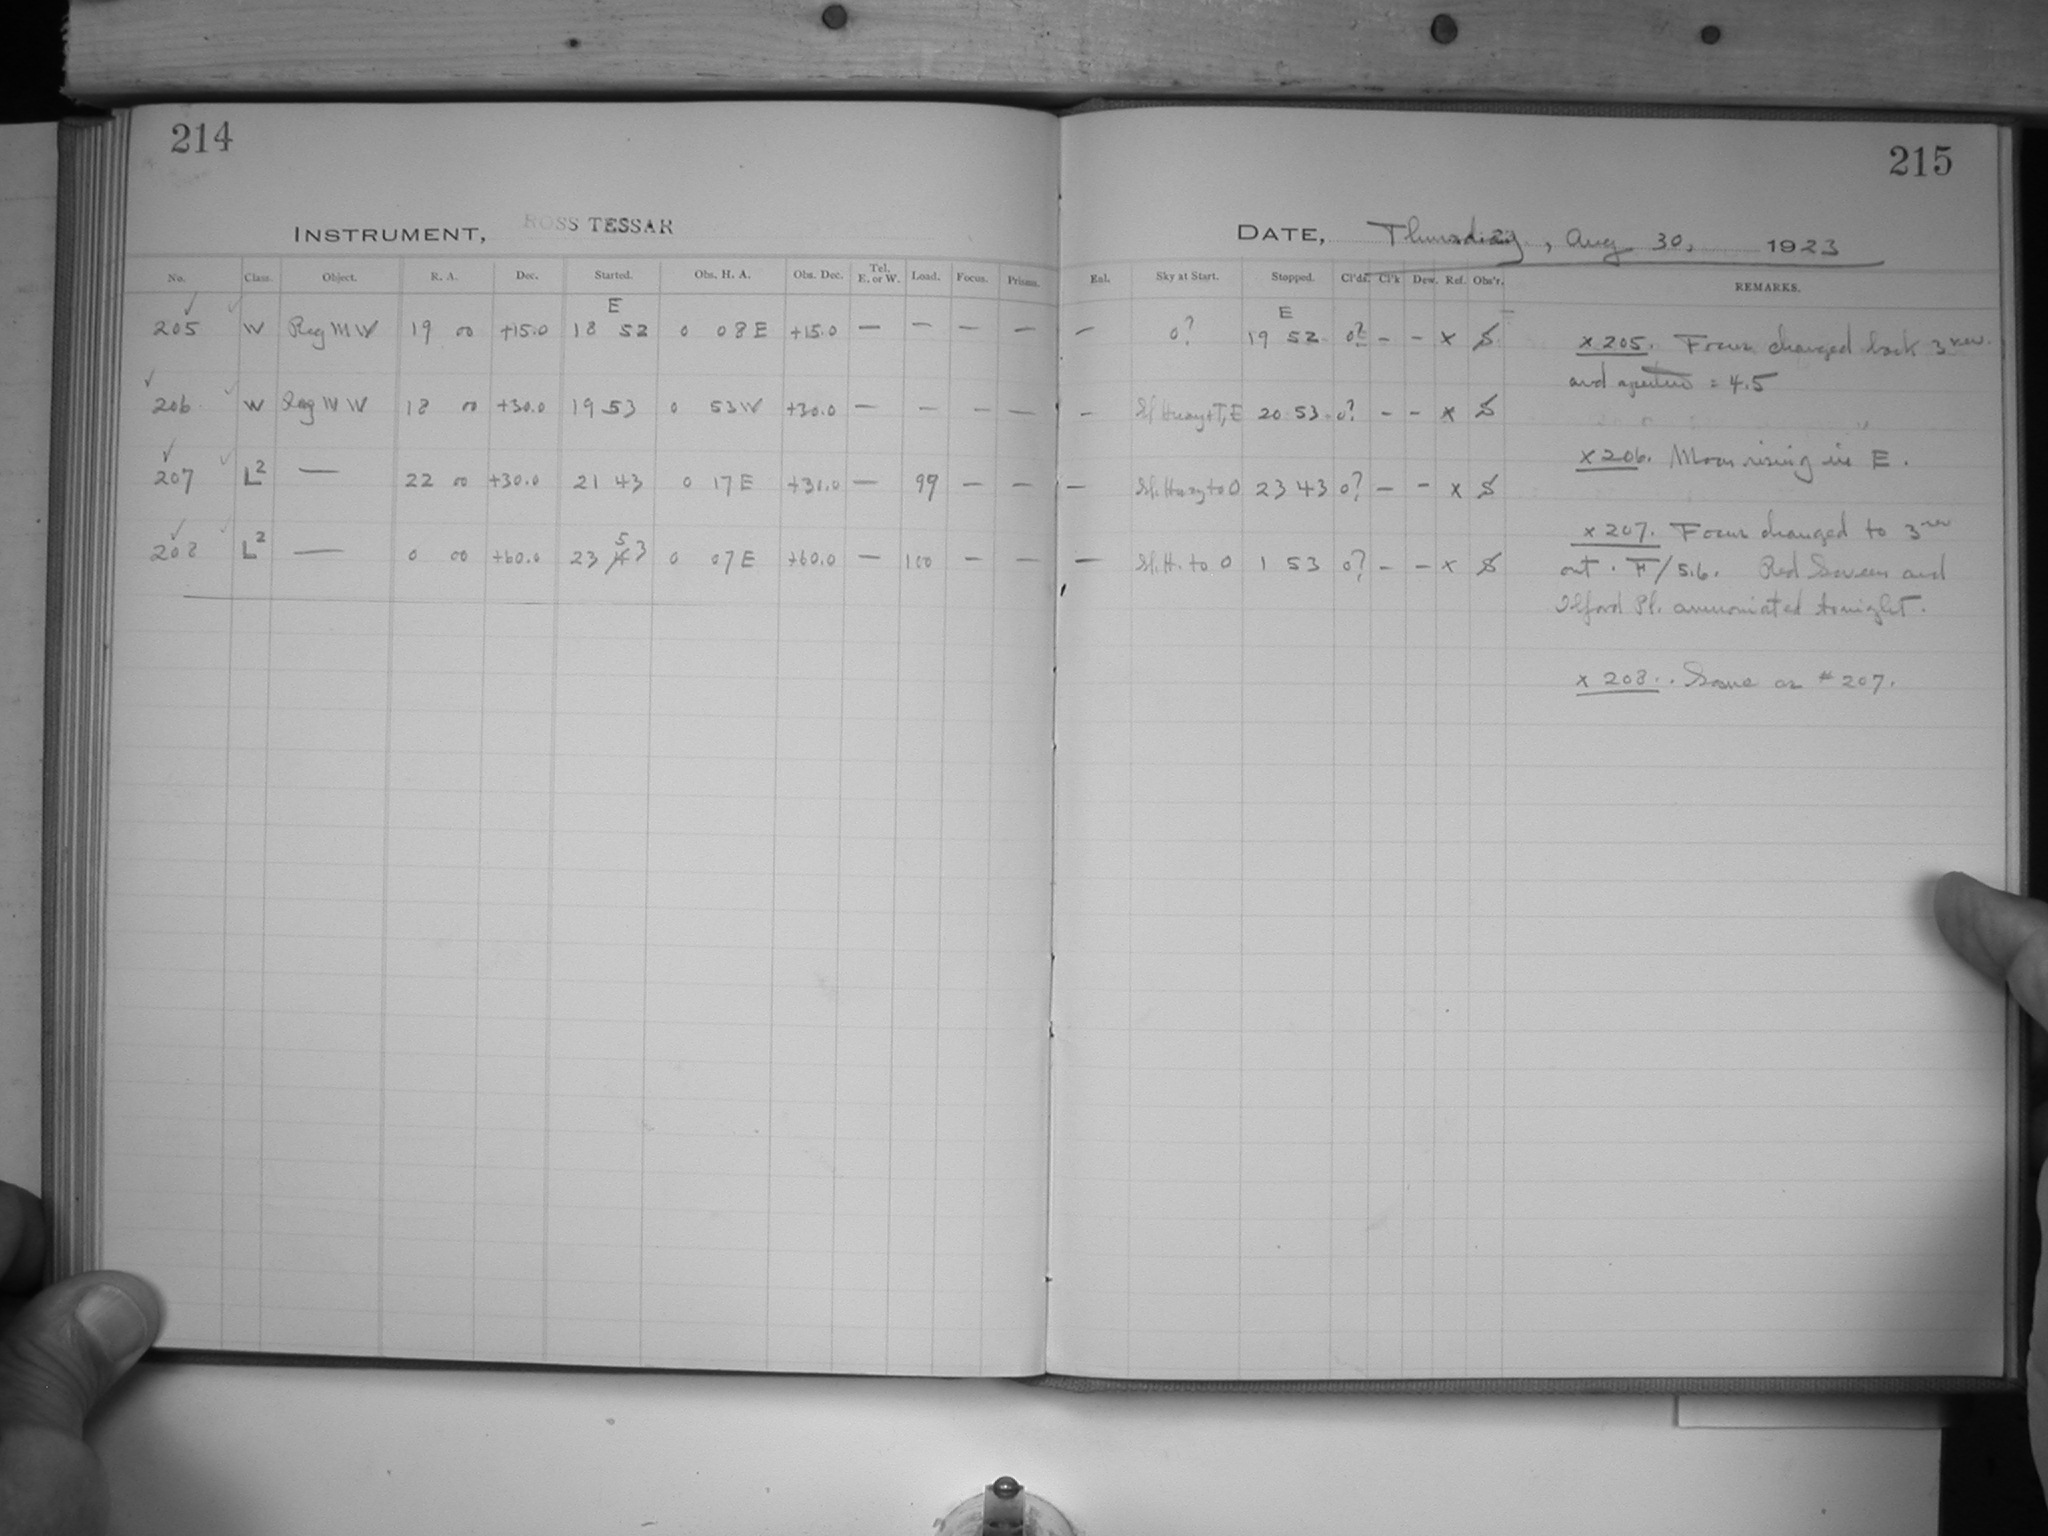 214
INSTRUMENT, ROSS TESSAR
No. Class. Object. R. A. Dec. Started. Obs. H. A. Obs. Dec. Tel. E. or W. Load. Focus. Prisms.
E
205 W Reg M W 19 00 +15.0 18 52 0 08 E +15.0 — — — —
206 W Reg M W 18 00 +30.0 19 53 0 53 W +30.0 — — — —
207 L2 — 22 00 +30.0 21 43 0 17 E +30.0 — 99 — —
208 L2 — 0 00 +60.0 23 53 0 07 E +60.0 — 100 — —
215
DATE, Thursday, Aug 30, 1923
Enl. Sky at Start. Stopped. Cl'ds. Cl'k Dew. Ref. Obs'r. REMARKS.
E
— 0? 19 52 0? – – x S
– Sl. Hazy + T, E 20 53 0? – – x S
— Sl. Hazy to 0 23 43 0? – – x S
— Sl. H. to 0 1 53 0? – – x S
x 205. Focus changed back 3 rev.
and aperture = 4.5
x 206. Moon rising in E.
x 207. Focus changed to 3 rev
out. F/5.6. Red Screen and
Ilford Pl. ammoniated tonight.
x 208.. Same as #207.